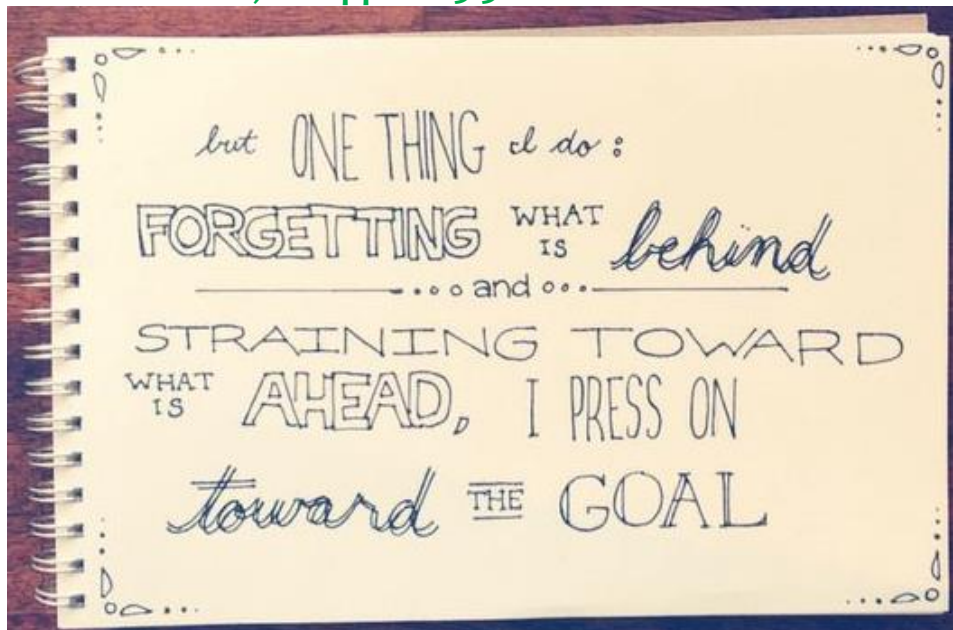 but ONE THING I do:
FORGETTING WHAT IS behind
and
STRAINING TOWARD
WHAT IS AHEAD, I PRESS ON
toward THE GOAL